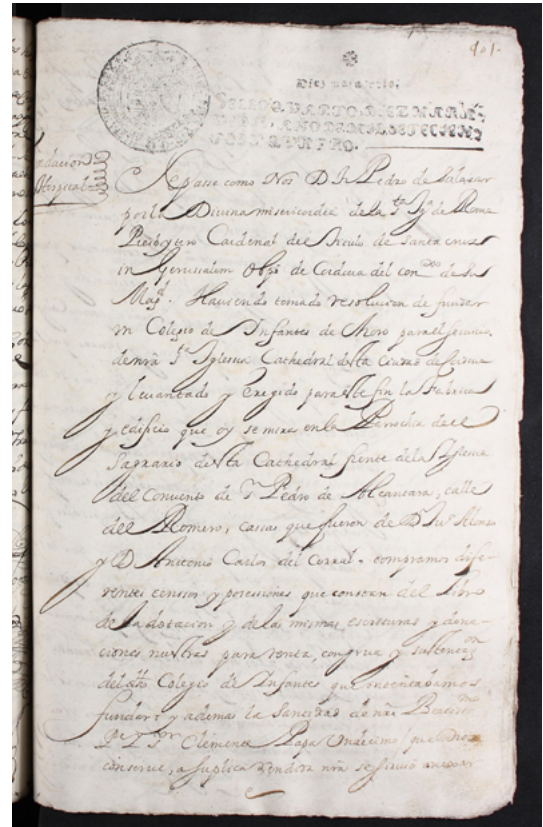 401.
Diez maravedis.
SELLO QVARTO, DIEZ MARA,
VEDIS, AÑO DE MIL Y SETECIEN,
TOS Y
Fundacion
Hospital
Sepasse como Nos D. Fr. Pedro de Salazar
por la Divina misericordia de la Sta. Yga. de Roma
Presbytero Cardenal del titulo de Santa cruz
in Gerusalem Obpo de Cordova del conso. de su
Magd. Haviendo tomado resolucion de fundar
un Colegio de Infantes de Choro para el servicio
de nra Sta. Iglesia Cathedral desta Ciudad de
y levantado y Eregido para este fin la Fabrica
y edificio que oy se mira en la Parrochia del
Sagrario desta Cathedral frente de la Iglesia
del Convento de Sn Pedro de Alcantara, calle
del Romero, cassas que fueron de D. Jun. Alonso
y D. Antonio Carlos del Corral. compramos dife-
rentes censsos y possessiones que constan del Libro
de la dotacion y de las mismas escrituras y dona-
ciones nuestras para renta, congrua y sustentacion
del dho. Colegio de Infantes que intentabamos
fundar: y ademas la Santidad de nro Beatissmo
Pe. y Sor. Clemente Papa Undecimo (que Dios
conserve, a suplica rendida nra se sirvio